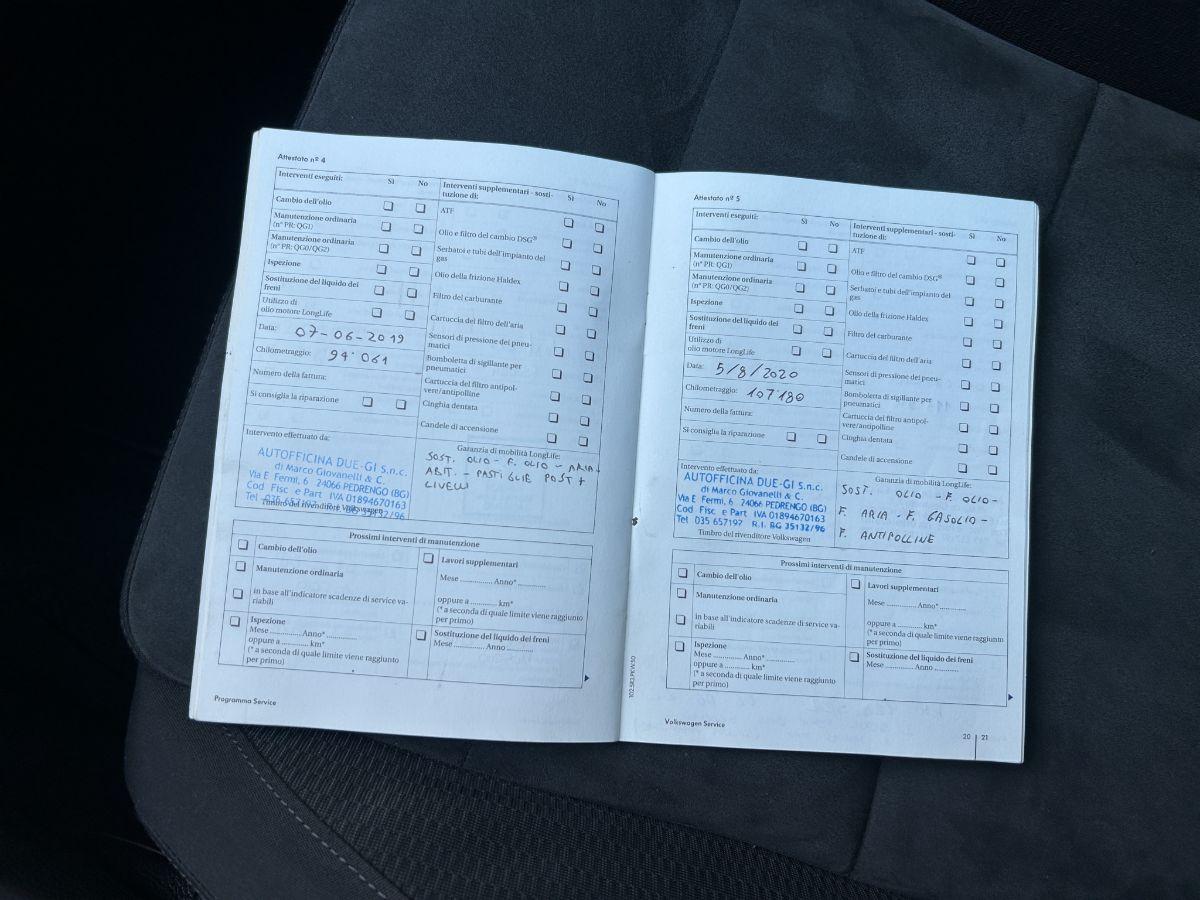 Attestato nº 4
Interventi eseguiti: Sì No
Cambio dell'olio
Manutenzione ordinaria
(nº PR: QG1)
Manutenzione ordinaria
(nº PR: QG0/QG2)
Ispezione
Sostituzione del liquido dei
freni
Utilizzo di
olio motore LongLife
Data: 07-06-2019
Chilometraggio: 94'061
Numero della fattura:
Si consiglia la riparazione
Intervento effettuato da:
AUTOFFICINA DUE-GI S.n.c.
di Marco Giovanelli & C.
Via E. Fermi, 6 24066 PEDRENGO (BG)
Cod. Fisc. e Part. IVA 01894670163
Tel. 035 657197 R.I. BG 35132/96
Timbro del rivenditore Volkswagen
Interventi supplementari - sosti-
tuzione di: Sì No
ATF
Olio e filtro del cambio DSG®
Serbatoi e tubi dell'impianto del
gas
Olio della frizione Haldex
Filtro del carburante
Cartuccia del filtro dell'aria
Sensori di pressione dei pneu-
matici
Bomboletta di sigillante per
pneumatici
Cartuccia del filtro antipol-
vere/antipolline
Cinghia dentata
Candele di accensione
Garanzia di mobilità LongLife:
SOST. OLIO - F. OLIO - ARIA +
ABIT. - PASTIGLIE POST +
LIVELLI
Prossimi interventi di manutenzione
Cambio dell'olio
Manutenzione ordinaria
in base all'indicatore scadenze di service va-
riabili
Ispezione
Mese ............ Anno* ............
oppure a ............ km*
(* a seconda di quale limite viene raggiunto
per primo)
Lavori supplementari
Mese ............ Anno* ............
oppure a ............ km*
(* a seconda di quale limite viene raggiunto
per primo)
Sostituzione del liquido dei freni
Mese ............ Anno ............
Programma Service
Attestato nº 5
Interventi eseguiti: Sì No
Cambio dell'olio
Manutenzione ordinaria
(nº PR: QG1)
Manutenzione ordinaria
(nº PR: QG0/QG2)
Ispezione
Sostituzione del liquido dei
freni
Utilizzo di
olio motore LongLife
Data: 5/8/2020
Chilometraggio: 107'180
Numero della fattura:
Si consiglia la riparazione
Intervento effettuato da:
AUTOFFICINA DUE-GI S.n.c.
di Marco Giovanelli & C.
Via E. Fermi, 6 24066 PEDRENGO (BG)
Cod. Fisc. e Part. IVA 01894670163
Tel. 035 657197 R.I. BG 35132/96
Timbro del rivenditore Volkswagen
Interventi supplementari - sosti-
tuzione di: Sì No
ATF
Olio e filtro del cambio DSG®
Serbatoi e tubi dell'impianto del
gas
Olio della frizione Haldex
Filtro del carburante
Cartuccia del filtro dell'aria
Sensori di pressione dei pneu-
matici
Bomboletta di sigillante per
pneumatici
Cartuccia del filtro antipol-
vere/antipolline
Cinghia dentata
Candele di accensione
Garanzia di mobilità LongLife:
SOST. OLIO - F. OLIO -
F. ARIA - F. GASOLIO -
F. ANTIPOLLINE
Prossimi interventi di manutenzione
Cambio dell'olio
Manutenzione ordinaria
in base all'indicatore scadenze di service va-
riabili
Ispezione
Mese ............ Anno* ............
oppure a ............ km*
(* a seconda di quale limite viene raggiunto
per primo)
Lavori supplementari
Mese ............ Anno* ............
oppure a ............ km*
(* a seconda di quale limite viene raggiunto
per primo)
Sostituzione del liquido dei freni
Mese ............ Anno ............
Volkswagen Service
20 21